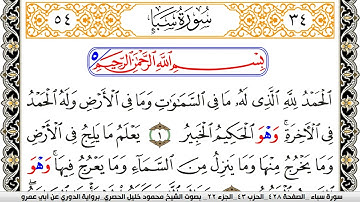 ٥٤ سُورَةُ سَبَإٍ ٣٤
بِسْمِ اللَّهِ الرَّحْمَٰنِ الرَّحِيمِ ٥
الْحَمْدُ لِلَّهِ الَّذِي لَهُ مَا فِي السَّمَٰوَٰتِ وَمَا فِي الْأَرْضِ وَلَهُ الْحَمْدُ
فِي الْآخِرَةِ وَهْوَ الْحَكِيمُ الْخَبِيرُ ١ يَعْلَمُ مَا يَلِجُ فِي الْأَرْضِ
وَمَا يَخْرُجُ مِنْهَا وَمَا يَنزِلُ مِنَ السَّمَاءِ وَمَا يَعْرُجُ فِيهَا وَهْوَ
سورة سباء . الصفحة ٤٢٨ . الحزب ٤٣ . الجزء ٢٢ . بصوت الشيخ محمود خليل الحصري . برواية الدوري عن أبي عمرو